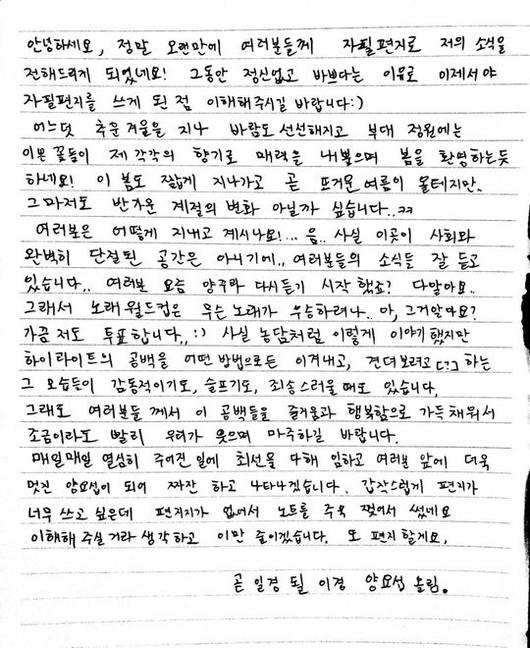 안녕하세요, 정말 오랜만에 여러분들께 자필편지로 저의 소식을
전해드리게 되었네요! 그동안 정신없고 바쁘다는 이유로 이제서야
자필편지를 쓰게 된 점 이해해주시길 바랍니다:)
어느덧 추운 겨울을 지나 바람도 선선해지고 부대 정원에는
이쁜 꽃들이 제 각각의 향기로 매력을 내뿜으며 봄을 환영하는듯
하네요! 이 봄도 짧게 지나가고 곧 뜨거운 여름이 올테지만..
그마저도 반가운 계절의 변화 아닐까 싶습니다..ㅋㅋ
여러분은 어떻게 지내고 계시나요!... 음.. 사실 이곳이 사회와
완벽히 단절된 공간은 아니기에.. 여러분들의 소식들 잘 듣고
있습니다.. 여러분 요즘 양주와 다시듣기 시작했죠? 다알아요..
그래서 노래월드컵은 무슨노래가 우승하려나.. 아, 그거알아요?
가끔 저도 투표합니다..:) 사실 농담처럼 이렇게 이야기했지만
하이라이트의 공백을 어떤 방법으로든 이겨내고, 견뎌보려고 하는
그 모습들이 감동적이기도, 슬프기도, 죄송스러울 때도 있습니다.
그래도 여러분들 께서 이 공백들을 즐거움과 행복함으로 가득채워서
조금이라도 빨리 우리가 웃으며 마주하길 바랍니다.
매일매일 열심히 주어진 일에 최선을 다해 임하고 여러분 앞에 더욱
멋진 양요섭이 되어 짜잔 하고 나타나겠습니다. 갑작스럽게 편지가
너무 쓰고 싶은데 편지지가 없어서 노트를 주욱 찢어서 썼네요
이해해 주실거라 생각하고 이만 줄이겠습니다. 또 편지 할게요.
곧 일경 될 이경 양요섭 올림.